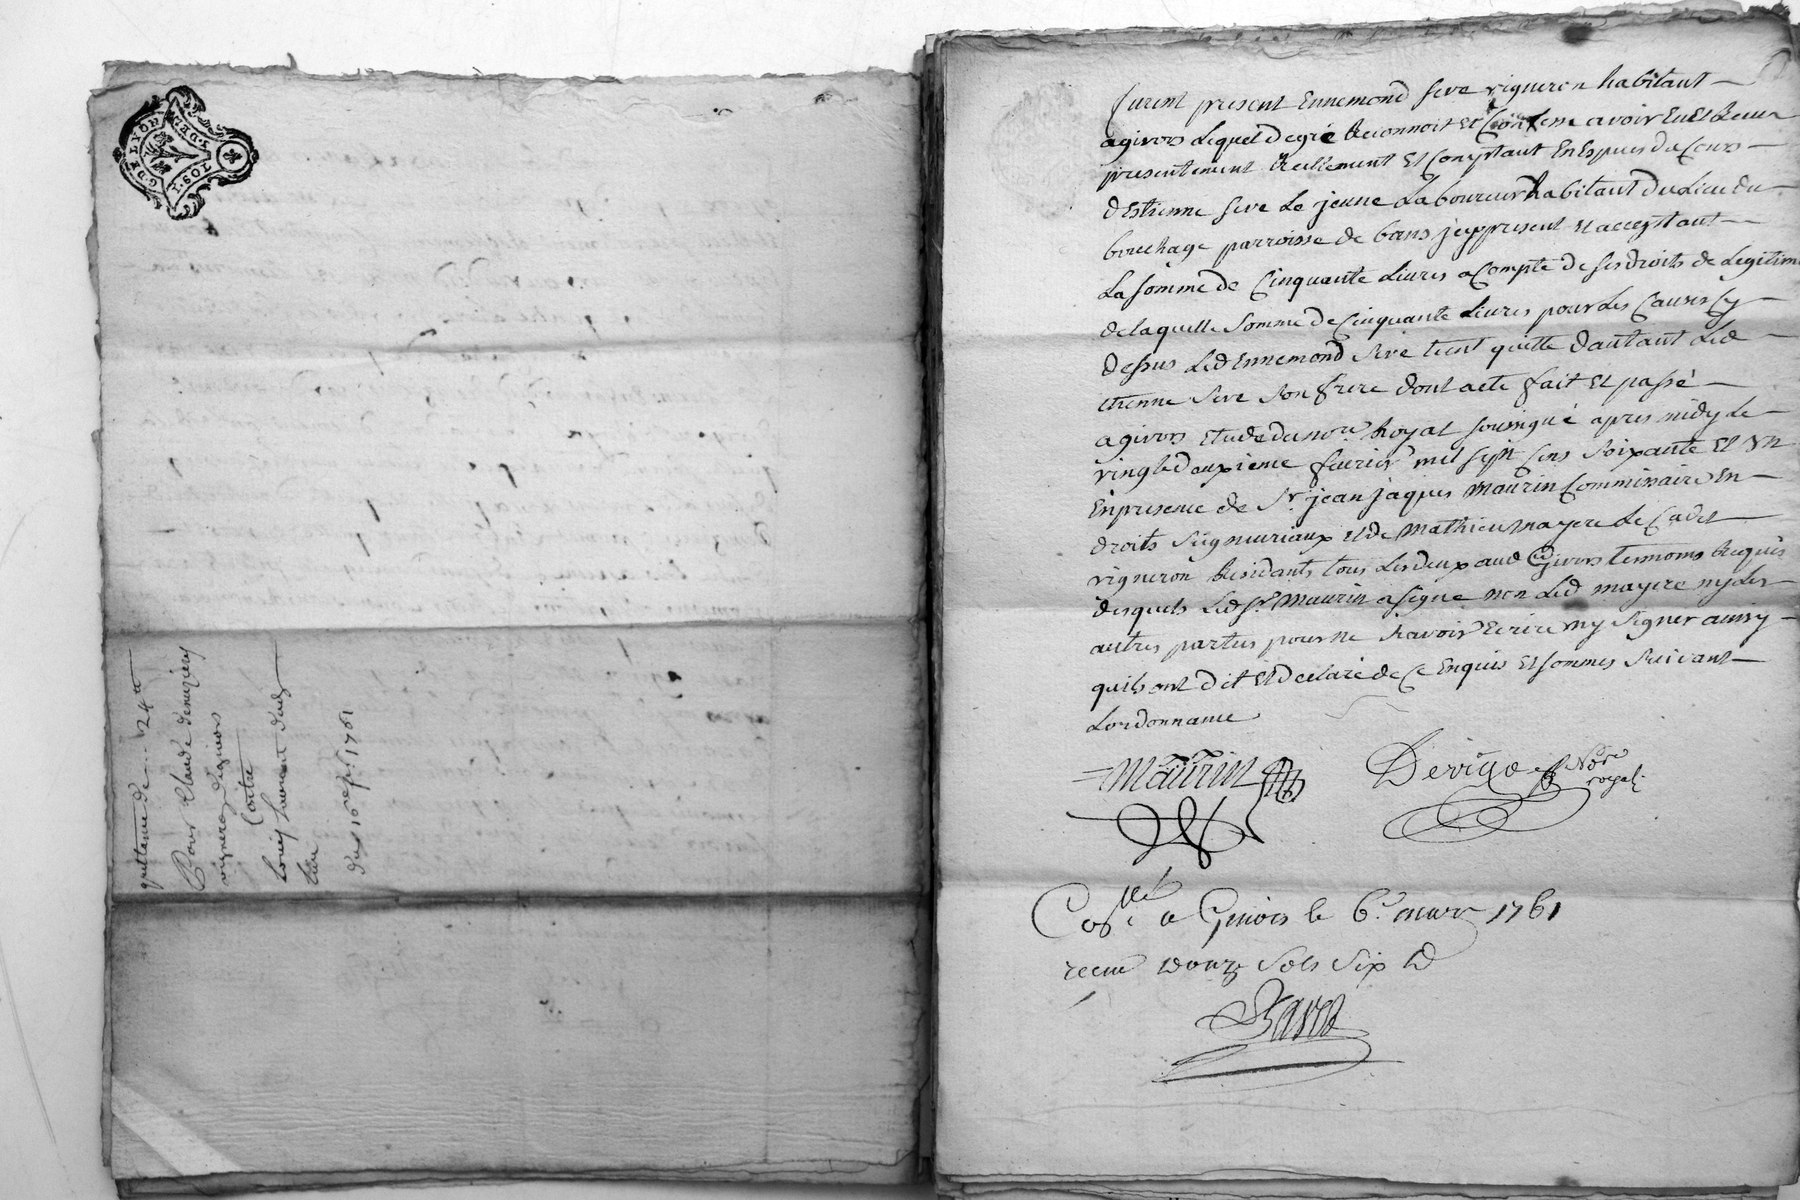 G. DE LYON
quittance de ... 24 tt
Pour Claude Denuziere
vigneron de givors
Contre
Louis
du 16 1761
furent present Ennemond Seve vigneron habitant
a givors Lequel de gré Reconnoit Et Confesse avoir Eu Et Receu
presentement Reellement Et Comptant En Especes du Cours
d'Estienne Seve Le jeune Laboureur habitant du Lieu du
bouchage parroisse de bans jcy present Et acceptant
La somme de Cinquante Livres a Compte de ses droits de Legitime
de laquelle Somme de Cinquante Livres pour Les Causes Cy
dessus Led Ennemond Seve tient quitte d'autant Led
Etienne Seve Son frere dont acte fait Et passé
a givors Etude du nore. Royal soussigné apres midy Le
vingt deuxieme fevrier mil sept Cens Soixante Et Un
En presence de Sr. jean jaques Maurin Commissaire En
droits Seigneuriaux Et de Mathieu mayere Le Cadet
vigneron Residants tous Les deux aud Givors temoins Requis
desquels Led Sr. Maurin a signé non Led mayere ny Les
autres parties pour ne Scavoir Ecrire ny Signer ainsy
quils ont dit Et declaré de Ce Enquis Et sommés Suivant
Lordonnance
Maurin
Devigo Nore
royal
Coslé. a Givors le 6e. mars 1761
receu douze Sols Six d